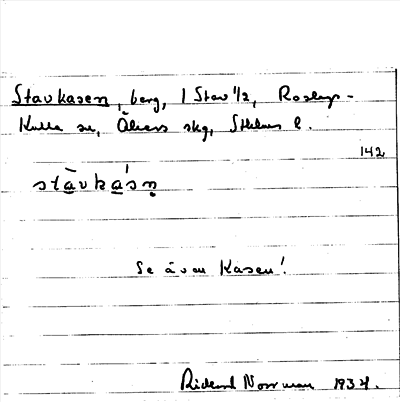 Stavkasen, berg, 1 Stav 1/2, Roslags-
Kulla sn, Åkers skg, Sthlms l.
142
stàvká́sn̥
Se även Kasen!
Rickard Norrman 1934.